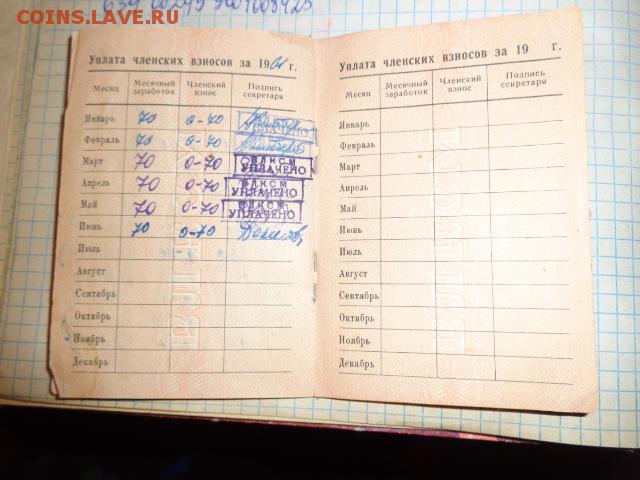 COINS.LAVE.RU
Уплата членских взносов за 19 г.
Месяц Месячный заработок Членский взнос Подпись секретаря
Январь 70 0-70 УПЛАЧЕНО
Февраль 70 0-70
Март 70 0-70 ВЛКСМ УПЛАЧЕНО
Апрель 70 0-70 ВЛКСМ УПЛАЧЕНО
Май 70 0-70 ВЛКСМ УПЛАЧЕНО
Июнь 70 0-70
Июль
Август
Сентябрь
Октябрь
Ноябрь
Декабрь
Уплата членских взносов за 19 г.
Месяц Месячный заработок Членский взнос Подпись секретаря
Январь
Февраль
Март
Апрель
Май
Июнь
Июль
Август
Сентябрь
Октябрь
Ноябрь
Декабрь